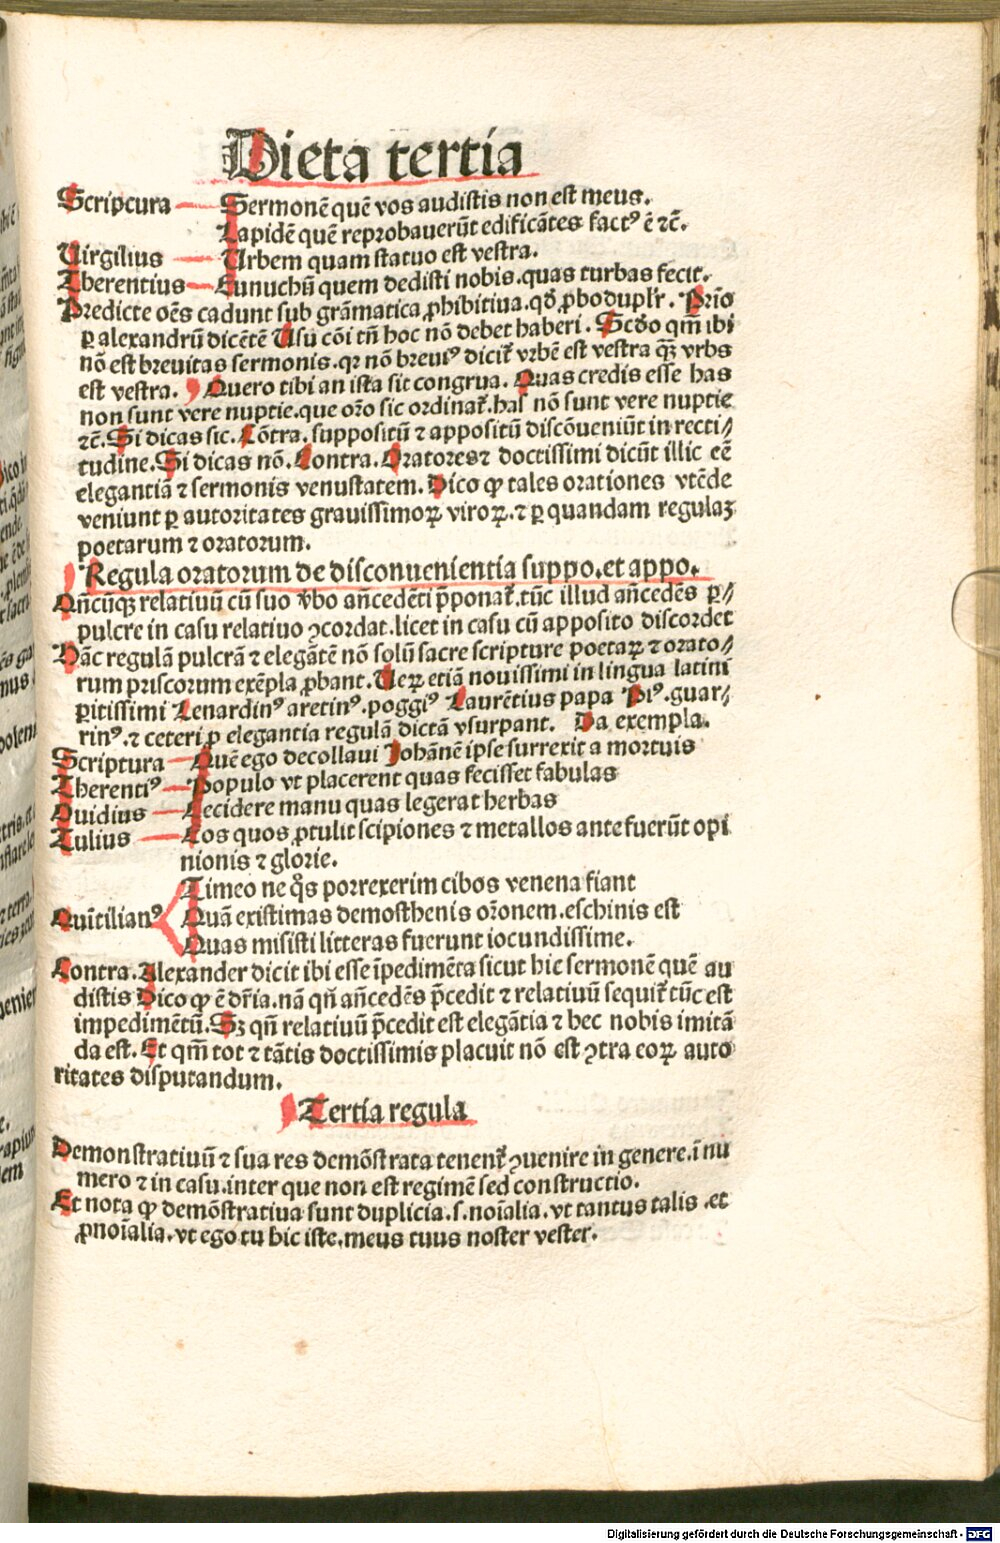 Dieta tertia
Scripcura Sermonē quē vos audistis non est meus.
Lapidē quē reprobauerūt edificātes factꝰ ē ⁊c̄.
Uirgilius Urbem quam statuo est vestra.
Therentius Eunuchū quem dedisti nobis.quas turbas fecit.
Predicte oēs cadunt sub grāmatica ꝓhibitiua.qđ ꝓbo dupłr. Prīo
ꝑ alexandrū dicētē Usu cōi tñ hoc nō debet haberi. Scđo qm̄ ibi
nō est breuitas sermonis.qr nō breuiꝰ dicit᷑ vrbē est vestra qꝫ̄ vrbs
est vestra. Quero tibi an ista sit congrua. Quas credis esse has
non sunt vere nuptie.que or̄o sic ordinat᷑.has nō sunt vere nuptie
⁊c̄.Si dicas sic.Cōtra.suppositū ⁊ appositū discōueniūt in recti⸗
tudine.Si dicas nō.Contra.Oratores⁊ doctissimi dicūt illic eē
elegantiā ⁊ sermonis venustatem.Dico ꝙ tales orationes vtēde
veniunt ꝑ autoritates grauissimoꝝ viroꝝ.⁊ ꝑ quandam regulaꝫ
poetarum ⁊ oratorum.
Regula oratorum de disconuenientia suppo.et appo.
Qñcūqꝫ relatiuū cū suo v̄bo añcedēti p̄ponat᷑.tūc illud añcedēs ꝑ⸗
pulcre in casu relatiuo ꝯcordat.licet in casu cū apposito discordet
Hāc regulā pulcrā ⁊ elegātē nō solū sacre scripture poetaꝝ ⁊ orato⸗
rum priscorum exēpla ꝓbant.Ueꝝ etiā nouissimi in lingua latini
ꝑitissimi Lenardinꝰ aretinꝰ.poggiꝰ Laurētius papa Piꝰ.guar⸗
rinꝰ.⁊ ceteri ꝑ elegantia regulā dictā vsurpant. Da exempla.
Scriptura Quē ego decollaui Johānē ipse surrexit a mortuis
Therentiꝰ Populo vt placerent quas fecisset fabulas
Ouidius Cecidere manu quas legerat herbas
Tulius Eos quos ꝓtulit scipiones ⁊ metallos ante fuerūt opi
nionis ⁊ glorie.
Timeo ne q̊s porrexerim cibos venena fiant
Quītilianꝰ Quā existimas demosthenis or̄onem.eschinis est
Quas misisti litteras fuerunt iocundissime.
Contra.Alexander dicit ibi esse īpedimēta sicut hic sermonē quē au
distis Dico ꝙ ē dr̄ia.nā qñ añcedēs p̄cedit ⁊ relatiuū sequit᷑ tūc est
impedimētū.Sꝫ qñ relatiuū p̄cedit est elegātia ⁊ hec nobis imitā
da est.Et qm̄ tot ⁊ tātis doctissimis placuit nō est ꝯtra eoꝝ auto
ritates disputandum.
Tertia regula
Demonstratiuū ⁊ sua res demōstrata tenent᷑ ꝯuenire in genere.ī nu
mero ⁊ in casu.inter que non est regimē sed constructio.
Et nota ꝙ demōstratiua sunt duplicia.s.noīalia.vt tantus talis.et
ꝓnoīalia.vt ego tu hic iste.meus tuus noster vester.
Digitalisierung gefördert durch die Deutsche Forschungsgemeinschaft - DFG